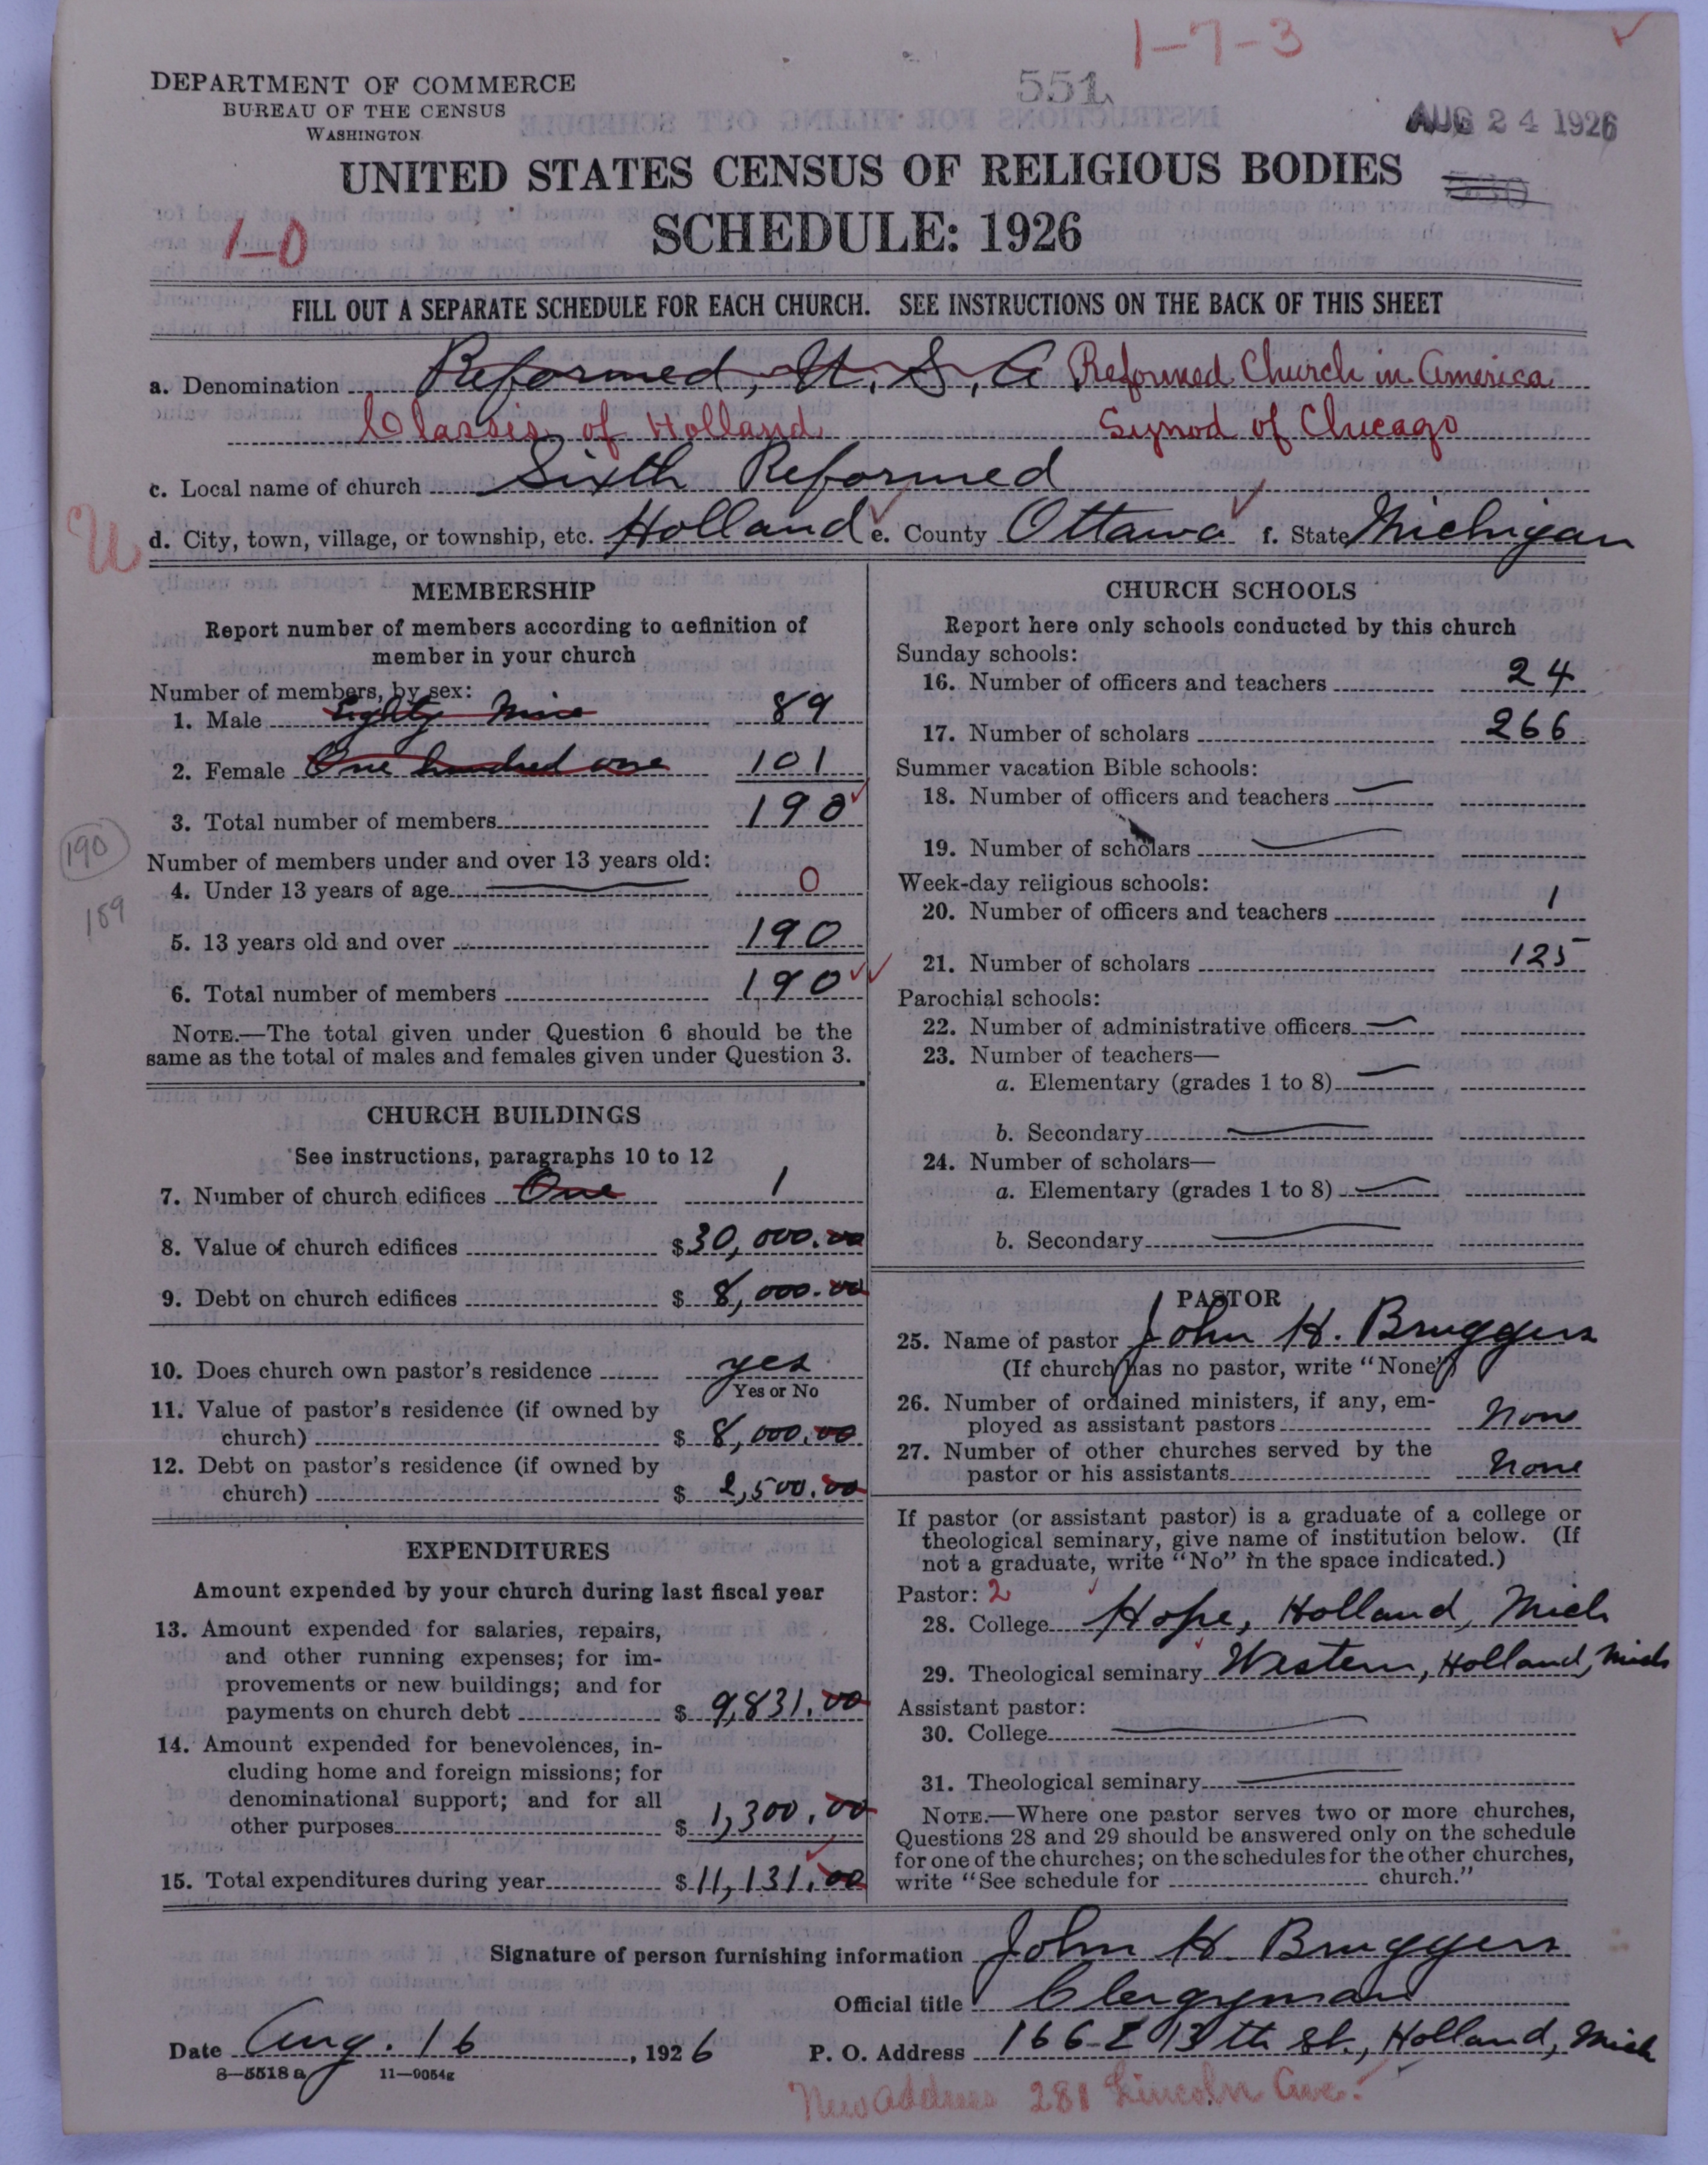 1-7-3
551
DEPARTMENT OF COMMERCE
BUREAU OF THE CENSUS
WASHINGTON
AUG 24 1926
UNITED STATES CENSUS OF RELIGIOUS BODIES
SCHEDULE: 1926
1-0
FILL OUT A SEPARATE SCHEDULE FOR EACH CHURCH. SEE INSTRUCTIONS ON THE BACK OF THIS SHEET
a. Denomination Reformed, U. S. A Reformed Church in America
Classis of Holland Synod of Chicago
c. Local name of church Sixth Reformed
d. City, town, village, or township, etc. Holland e. County Ottawa f. State Michigan
MEMBERSHIP
Report number of members according to definition of
member in your church
Number of members, by sex:
1. Male Eighty Nine 89
2. Female One hundred one 101
3. Total number of members 190
190
Number of members under and over 13 years old:
4. Under 13 years of age 0
189
5. 13 years old and over 190
6. Total number of members 190
NOTE.—The total given under Question 6 should be the
same as the total of males and females given under Question 3.
CHURCH BUILDINGS
See instructions, paragraphs 10 to 12
7. Number of church edifices One 1
8. Value of church edifices $ 30,000.00
9. Debt on church edifices $ 8,000.00
10. Does church own pastor's residence yes
Yes or No
11. Value of pastor's residence (if owned by
church) $ 8,000.00
12. Debt on pastor's residence (if owned by
church) $ 2,500.00
EXPENDITURES
Amount expended by your church during last fiscal year
13. Amount expended for salaries, repairs,
and other running expenses; for im-
provements or new buildings; and for
payments on church debt $ 9,831.00
14. Amount expended for benevolences, in-
cluding home and foreign missions; for
denominational support; and for all
other purposes $ 1,300.00
15. Total expenditures during year $ 11,131.00
CHURCH SCHOOLS
Report here only schools conducted by this church
Sunday schools:
16. Number of officers and teachers 24
17. Number of scholars 266
Summer vacation Bible schools:
18. Number of officers and teachers
19. Number of scholars
Week-day religious schools:
20. Number of officers and teachers 1
21. Number of scholars 125
Parochial schools:
22. Number of administrative officers
23. Number of teachers—
a. Elementary (grades 1 to 8)
b. Secondary
24. Number of scholars—
a. Elementary (grades 1 to 8)
b. Secondary
PASTOR
25. Name of pastor John H. Bruggers
(If church has no pastor, write "None")
26. Number of ordained ministers, if any, em-
ployed as assistant pastors None
27. Number of other churches served by the
pastor or his assistants None
If pastor (or assistant pastor) is a graduate of a college or
theological seminary, give name of institution below. (If
not a graduate, write "No" in the space indicated.)
Pastor: 2
28. College Hope, Holland, Mich
29. Theological seminary Western, Holland, Mich
Assistant pastor:
30. College
31. Theological seminary
NOTE.—Where one pastor serves two or more churches,
Questions 28 and 29 should be answered only on the schedule
for one of the churches; on the schedules for the other churches,
write "See schedule for church."
Signature of person furnishing information John H. Bruggers
Official title Clergyman
Date Aug. 16, 1926 P. O. Address 166 E 13th St., Holland, Mich
8—5518a 11—9054g
New address 281 Lincoln Ave.